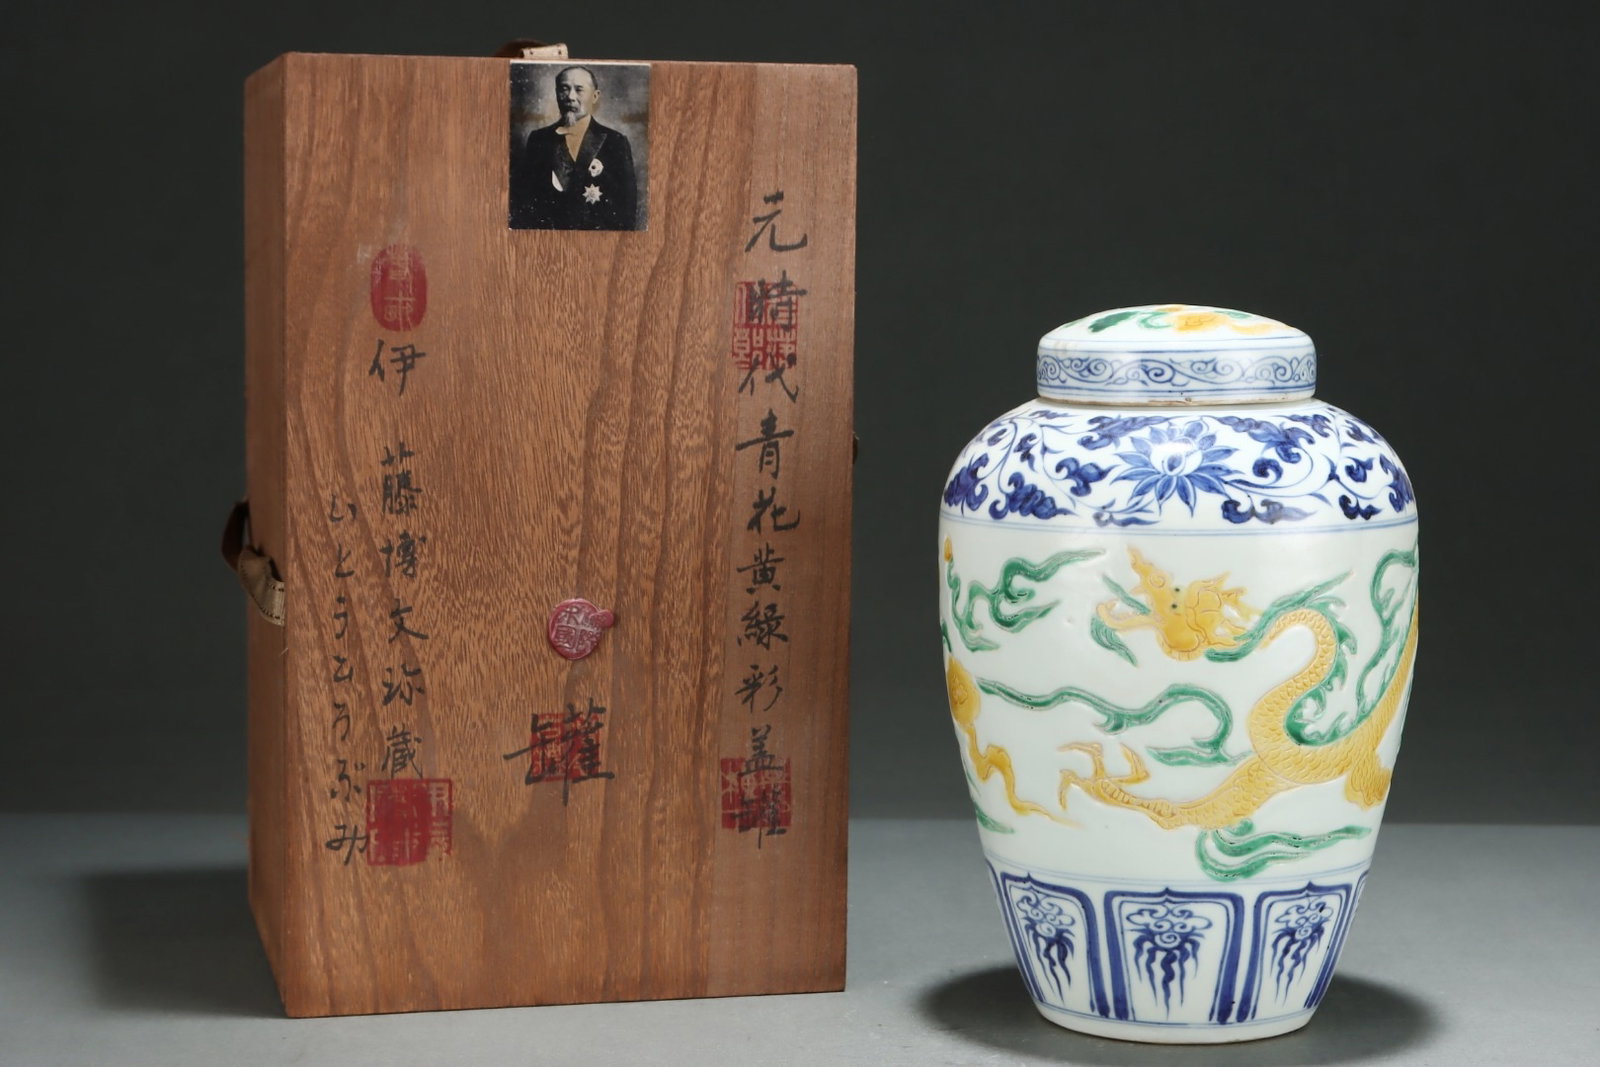 元時代青花黄緑彩盖罐
罐
伊藤博文弥蔵
いとうひろぶみ